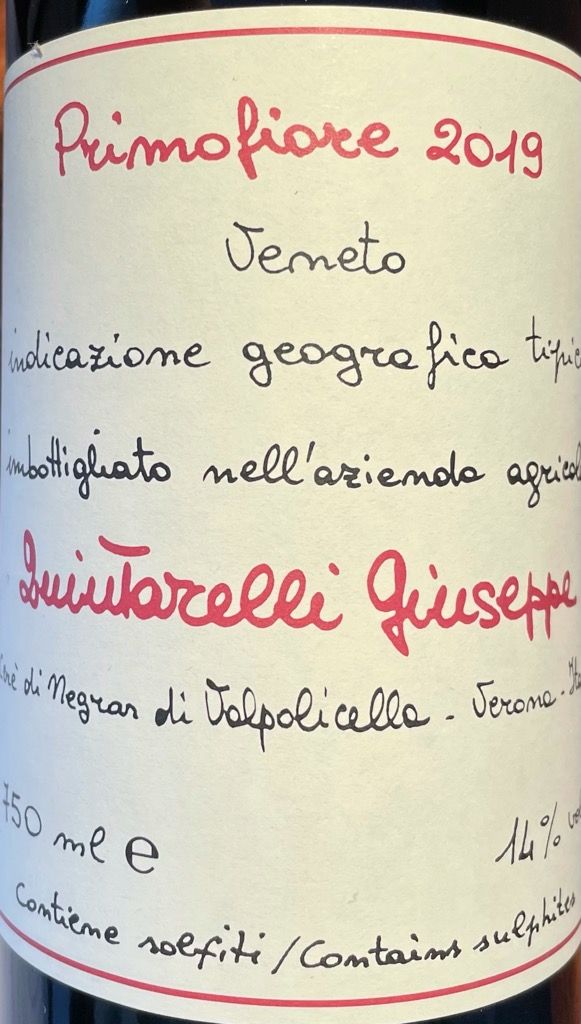 Primofiore 2019
Veneto
indicazione geografica tipic
imbottigliato nell'azienda agricol
Quintarelli Giuseppe
di Negrar di Valpolicella - Verona - Ita
750 ml e
14% vol
Contiene solfiti / Contains sulphites